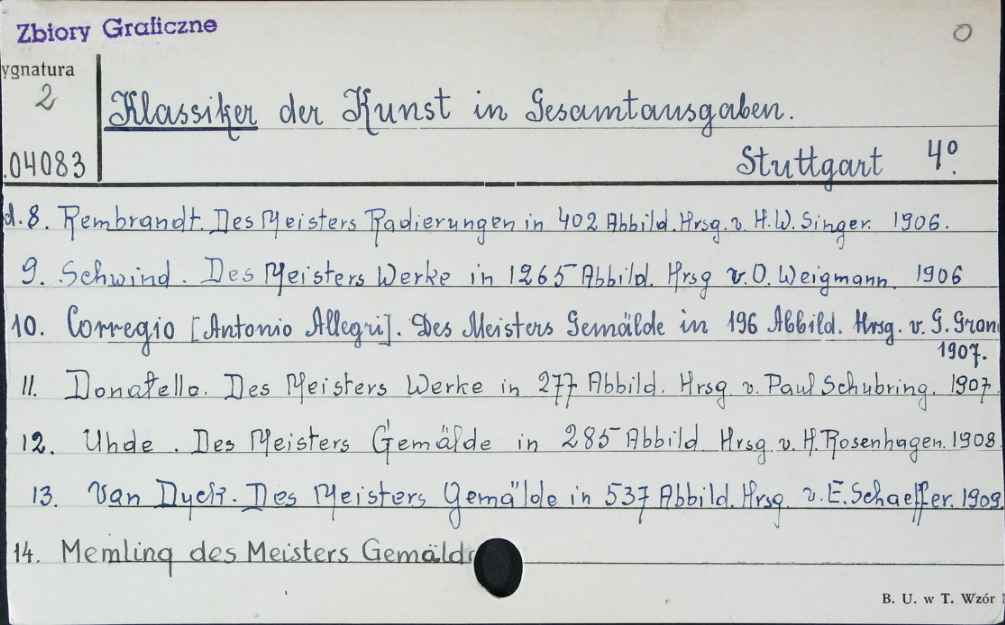 Zbiory Graficzne
O
ygnatura
2
Klassiker der Kunst in Gesamtausgaben.
.04083
Stuttgart 4º.
d.8. Rembrandt. Des Meisters Radierungen in 402 Abbild. Hrsg. v. H.W. Singer. 1906.
9. Schwind. Des Meisters Werke in 1265 Abbild. Hrsg v. O. Weigmann. 1906
10. Corregio [Antonio Allegri]. Des Meisters Gemälde in 196 Abbild. Hrsg. v. G. Gron
1907.
11. Donatello. Des Meisters Werke in 277 Abbild. Hrsg. v. Paul Schubring. 1907
12. Uhde. Des Meisters Gemälde in 285 Abbild Hrsg. v. H. Rosenhagen. 1908
13. Van Dyck. Des Meisters Gemälde in 537 Abbild. Hrsg. v. E. Schaeffer. 1909
14. Memling des Meisters Gemälde
B. U. w T. Wzór